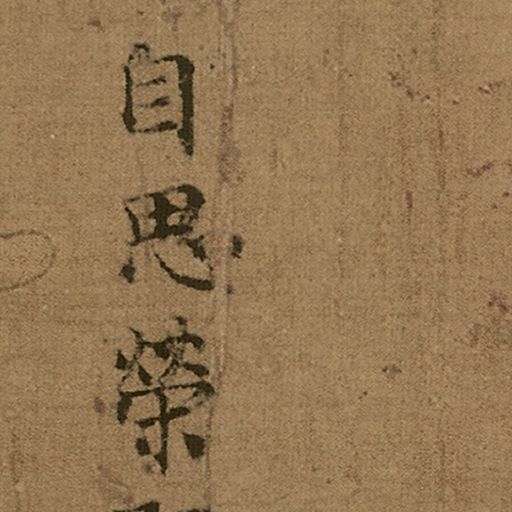 自思榮